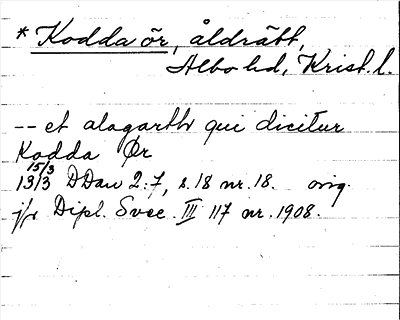 * Kodda ör, åldrätt,
Albo hd, Krist. l.
-- et alagarthr qui dicitur
Kodda Ør
15/3
1313 DDan 2:7, s.18 nr.18. orig.
jfr Dipl. Svec. III 117 nr. 1908.